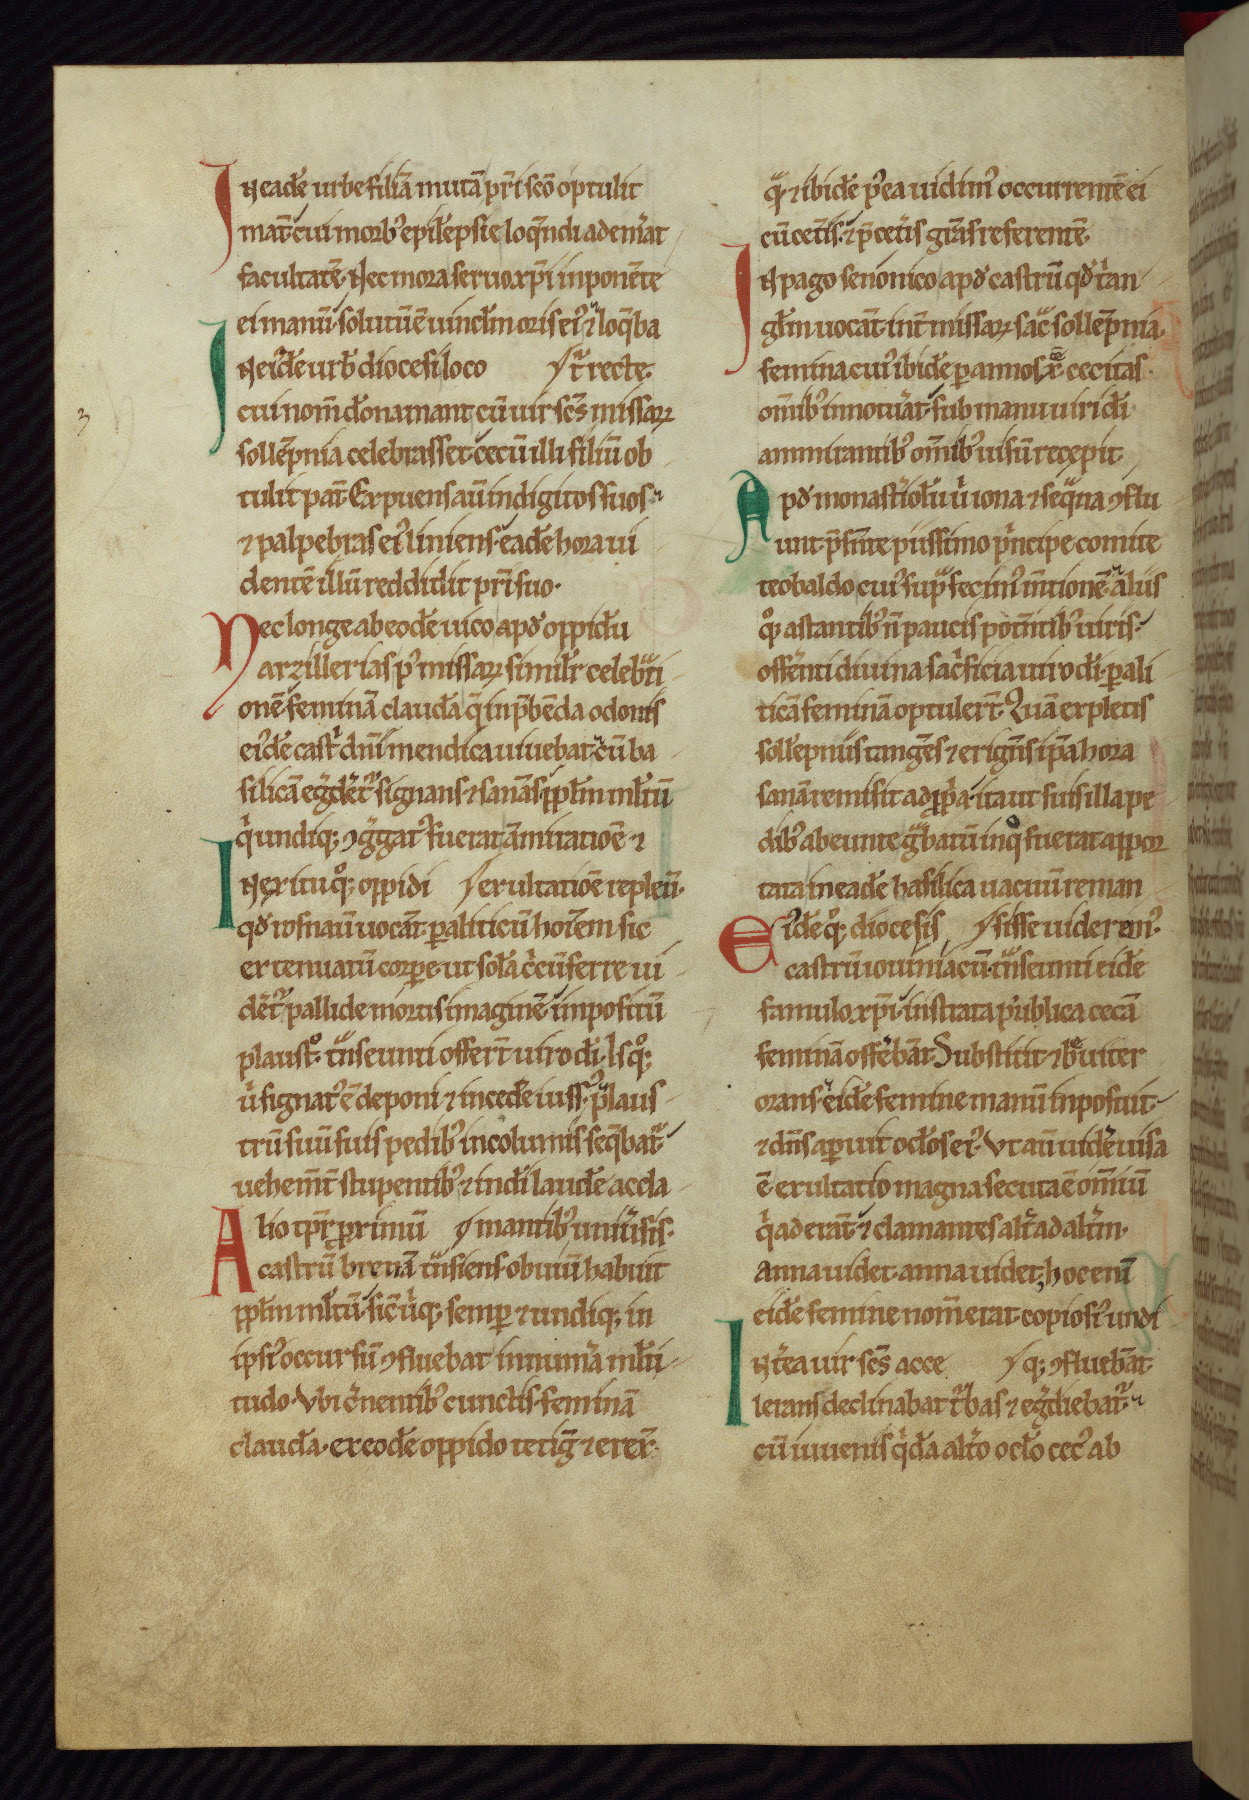 In eadē urbe filiā mutā pr̄i sc̄o optulit
mat̄. cui morbꝰ epilēpsie loq̄ndi adem̄at
facultatē. Nec mora seruo xp̄i inponēte
ei manū. solutū ē uincl̄m oris eiꝰ ⁊ loq̄ba
In eiꝰdē urb̄ diocesi loco t̄ recte.
cui nom̄ donamant. cū uir sc̄s missaꝝ
sollēpnia celebrasset. cecū illi filiū ob
tulit pat̄. Expuens aū in digitos suos.
⁊ palpebras eiꝰ liniens. eadē hora ui
dentē illū reddidit pr̄i suo.
Nec longe ab eodē uico apd̄ oppidū
arzillerias pꝰ missaꝝ simil̄r celebrati
onē. feminā claudā q̄ in p̄bēda odonis
eiꝰdē cast̄ dn̄i mendica uiuebat. cū ba
silicā eḡdet̄ꝰ signans ⁊ sanās. pp̄lm ml̄tū
qⁱ undiq; ꝯg̅gatꝰ fuerat ām̄iratiōe ⁊
In exitu qͦq; oppidi exultatiōe repleū.
qd̄ rosnaū uocāt. paliticū hoīem sic
extenuatū corpore. ut solā cⁱcūferre ui
det̄ꝰ pallide mortis imaginē impositū
plaustͦ. tn̄seunti offer̄t uiro dī. Is qͦq;
uⁱ signatꝰ ē deponi ⁊ incedē iussꝰ. plaus
trū suū suis pedibꝰ incolumis seq̄bat̄ꝰ
uehem̄t̄ stupentibꝰ ⁊ in dī laudē accla
Alio tp̄r p primū mantibꝰ uniūsis.
castrū brenā tn̄siens. obuiū habuit
pp̄lm ml̄tū. sic uⁱq; semp ⁊ undiq; in
ipsiꝰ occursū ꝯfluebat innum̄a ml̄ti
tudo. Vbi cⁱnentibꝰ cunctis. feminā
claudā. ex eodē oppido tetiḡ ⁊ erex̄.
q̄ ⁊ ibidē pꝰea uidimꝰ occurrentē ei
cū cet̄is. ⁊ p̄ cet̄is gr̄as referentē.
In pago senonico apd̄ castrū qd̄ tⁱan
gl̄m uocāt. int̄ missaꝝ sac̄ sollēpnia.
femina cuiꝰ ibidē p annos x cecitas
om̄ibꝰ innotuāt. sub manu uiri dī
am̄irantibꝰ om̄ibꝰ uisū recepit.
Apd̄ monastⁱolū uⁱ iona ⁊ seq̄na ꝯflu
unt. p̄sn̄te piissimo pⁱncipe comite
teobaldo cuiꝰ sup̄ fecimꝰ m̄tionē. aliis
qͦq; astantibꝰ n̄ paucis pot̄ntibꝰ uiris.
offēnti diuina sacⁱficia uiro dī. pali
ticā feminā optuler̄t. Quā expletis
sollēpniis tangēs ⁊ erigēs ipā hora
sanā remisit ad ppⁱa. ita ut suis illa pe
dibꝰ abeunte g̅batū in qͦ fuerat appor
tata in eadē basilica uacuū reman
Eiꝰdē qͦq; diocesis sisse uideremꝰ.
castrū iouiniacū. tn̄seunti eidē
famulo xp̄i. in strata publica cecā
feminā offēbāt. Substitit. ⁊ b̄uiter
orans. eidē femine manū inposuit.
⁊ dn̄s apuit ocl̄os eiꝰ. Vt aū uidē uisa
ē. exultatio magna secuta ē om̄iū
qⁱ aderāt. ⁊ clamantes alt̄ ad alt̄m.
anna uidet. anna uidet. hoc eni
eidē femine nom̄ erat. copiosiꝰ undi
Int̄ea uir sc̄s acce q; ꝯfluebāt
lerans declinabat tⁱbas ⁊ eg̅diebat̄ꝰ.
cū iuuenis qⁱda alt̄o ocl̄o cecꝰ ab
3